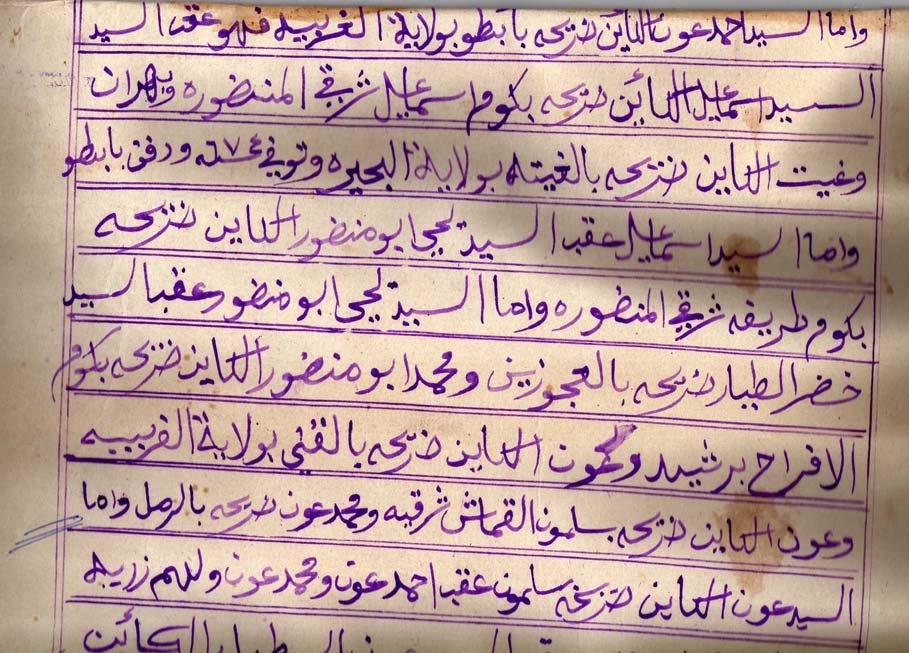 واما السيد احمد عون الكاين ضريحه بابطو بولاية الغربيه فهو عقب السيد
السيد اسماعيل الكائن ضريحه بكوم اسماعيل شرقي المنضوره وبهران
وغيت الكاين ضريحه بالغيته بولاية البحيره وتوفي ٧٤ سنه ودفن بابطو
واما السيد اسماعيل عقب السيد يحيى ابو منضور الكاين ضريحه
بكوم طريفه شرقي المنضوره واما السيد يحيى ابو منضور عقب السيد
خضر الطيار ضريحه بالعجوزين ومحمد ابو منضور الكاين ضريحه بكوم
الافراح برشيد وعون الكاين ضريحه بالقني بولاية الغربيه
وعون الكاين ضريحه بسلمون القماش شرقيه ومحمد عون ضريحه بالرمل واما
السيد عون الكاين ضريحه سلمون عقب احمد عون ومحمد عون ولهم زريه